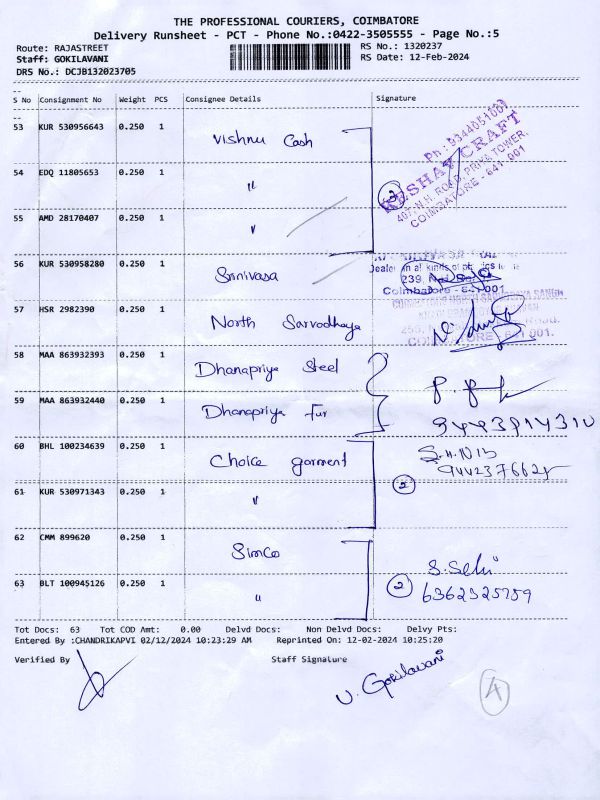 THE PROFESSIONAL COURIERS, COIMBATORE
Delivery Runsheet - PCT - Phone No.:0422-3505555 - Page No.:5
Route: RAJASTREET RS No.: 1320237
Staff: GOKILAVANI RS Date: 12-Feb-2024
DRS No.: DCJB132023705
S No Consignment No Weight PCS Consignee Details Signature
53 KUR 530956643 0.250 1 Vishnu Cash
Ph : 9344051001
KESHAV CRAFT
407, N.H. ROAD, PRIYA TOWER,
COIMBATORE - 641 001
54 EDQ 11805653 0.250 1 "
3
55 AMD 28170407 0.250 1 "
56 KUR 530958280 0.250 1 Srinivasa
Dealer in all kinds of
239,
Coimbatore - 641 001
57 HSR 2982390 0.250 1 North Sarvodhaya
COIMBATORE - 641 001.
58 MAA 863932393 0.250 1 Dhanapriya Steel
59 MAA 863932440 0.250 1 Dhanapriya Fur
9443914310
60 BHL 100234639 0.250 1 Choice garment
61 KUR 530971343 0.250 1 "
2
62 CMM 899620 0.250 1 Simco
63 BLT 100945126 0.250 1 "
2 6362325759
Tot Docs: 63 Tot COD Amt: 0.00 Delvd Docs: Non Delvd Docs: Delvy Pts:
Entered By :CHANDRIKAPVI 02/12/2024 10:23:29 AM Reprinted On: 12-02-2024 10:25:20
Verified By Staff Signature
V. Gokilavani
4